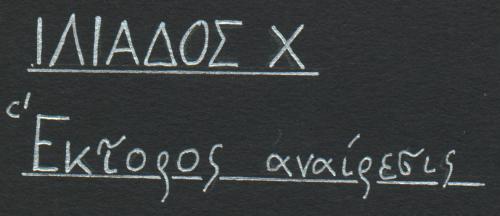 ΙΛΙΑΔΟΣ Χ
Ἕκτορος αναίρεσις